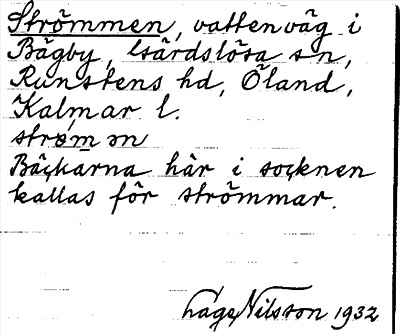 Strömmen, vattenväg i
Bägby, Gärdslösa sn,
Runstens hd, Öland,
Kalmar l.
strøm ən
Bäckarna här i socknen
kallas för strömmar.
Lage Nilsson 1932